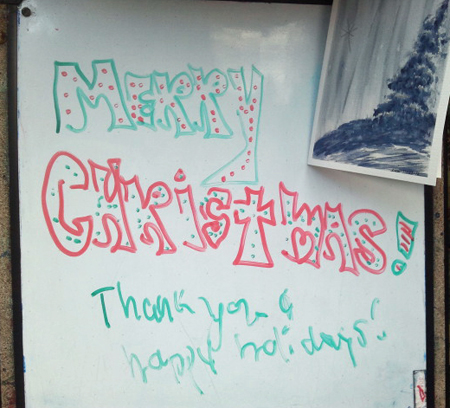 Merry
Christmas!
Thank you &
happy holidays!